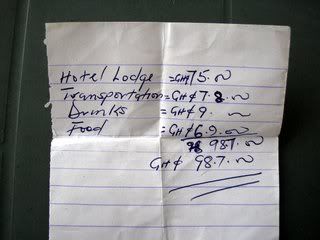 Hotel Lodge =GH¢75.00
Transportation=GH¢7.8.00
Drinks =GH¢9.00
Food =GH¢6.9.00
98.7.00
GH¢ 98.7.00